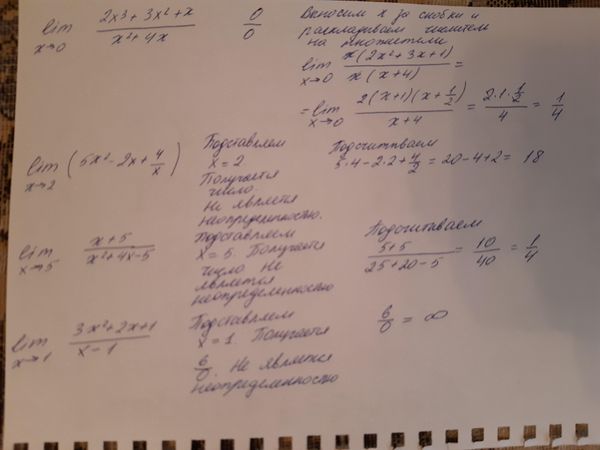 lim x→0 (2x³ + 3x² + x)/(x² + 4x)
0/0
Выносим x за скобки и
раскладываем числитель
на множители
lim x→0 x(2x² + 3x + 1)/x(x + 4) =
= lim x→0 2(x + 1)(x + 1/2)/(x + 4) = (2·1·1/2)/4 = 1/4
lim x→2 (5x² - 2x + 4/x)
Подставляем
x = 2
Получается
число.
Не является
неопределенностью.
Подсчитываем
5·4 - 2·2 + 4/2 = 20 - 4 + 2 = 18
lim x→5 (x + 5)/(x² + 4x - 5)
Подставляем
x = 5. Получается
число Не
является
неопределенностью
Подсчитываем
(5 + 5)/(25 + 20 - 5) = 10/40 = 1/4
lim x→1 (3x² + 2x + 1)/(x - 1)
Подставляем
x = 1. Получается
6/0. Не является
неопределенностью
6/0 = ∞